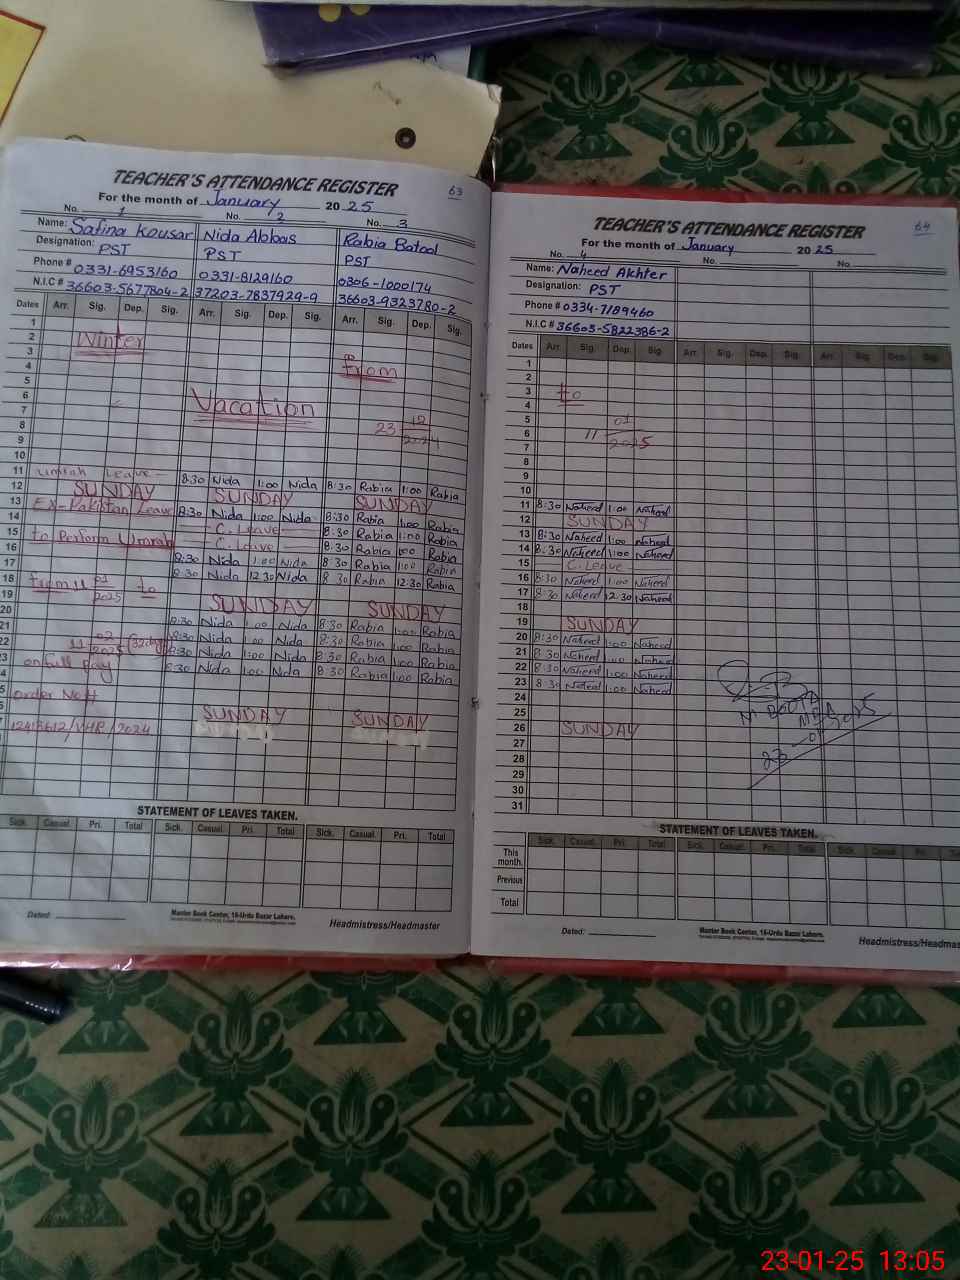 TEACHER'S ATTENDANCE REGISTER 63
For the month of January 2025
No. 1 No. 2 No. 3
Name: Safina Kousar Nida Abbas Rabia Batool
Designation: PST PST PST
Phone # 0331-6953160 0331-8129160 0306-1000174
N.I.C # 36603-5677804-2 37203-7837929-9 36603-9323780-2
Dates Arr. Sig. Dep. Sig. Arr. Sig. Dep. Sig. Arr. Sig. Dep. Sig.
1
2 Winter
3
4 from
5
6
7 Vacation
8 23 12/2024
9
10
11 Umrah Leave- 8:30 Nida 1:00 Nida 8:30 Rabia 1:00 Rabia
12 SUNDAY SUNDAY SUNDAY
13 Ex-Pakistan Leave 8:30 Nida 1:00 Nida 8:30 Rabia 1:00 Rabia
14 C. Leave 8:30 Rabia 1:00 Rabia
15 to Perform Umrah C. Leave 8:30 Rabia 1:00 Rabia
16 8:30 Nida 1:00 Nida 8:30 Rabia 1:00 Rabia
17 8:30 Nida 12:30 Nida 8:30 Rabia 12:30 Rabia
18 from 11 01/2025 to
19 SUNDAY SUNDAY
20 8:30 Nida 1:00 Nida 8:30 Rabia 1:00 Rabia
21 8:30 Nida 1:00 Nida 8:30 Rabia 1:00 Rabia
22 11 02/2025 (32 days) 8:30 Nida 1:00 Nida 8:30 Rabia 1:00 Rabia
23 on full pay 8:30 Nida 1:00 Nida 8:30 Rabia 1:00 Rabia
order No #
SUNDAY SUNDAY
12418612/VHR/2024
STATEMENT OF LEAVES TAKEN.
Sick. Casual. Pri. Total Sick. Casual. Pri. Total Sick. Casual. Pri. Total
Dated:
Master Book Center, 16-Urdu Bazar Lahore.
Headmistress/Headmaster
TEACHER'S ATTENDANCE REGISTER 64
For the month of January 2025
No. 4 No. No.
Name: Naheed Akhter
Designation: PST
Phone # 0334-7189460
N.I.C # 36603-5822386-2
Dates Arr. Sig. Dep. Sig. Arr. Sig. Dep. Sig. Arr. Sig. Dep. Sig.
1
2
3 to
4
5
6 11 01/2025
7
8
9
10
11 8:30 Naheed 1:00 Naheed
12 SUNDAY
13 8:30 Naheed 1:00 Naheed
14 8:30 Naheed 1:00 Naheed
15 C. Leave
16 8:30 Naheed 1:00 Naheed
17 8:30 Naheed 12:30 Naheed
18
19 SUNDAY
20 8:30 Naheed 1:00 Naheed
21 8:30 Naheed 1:00 Naheed
22 8:30 Naheed 1:00 Naheed
23 8:30 Naheed 1:00 Naheed
24
25
26 SUNDAY
27
28
29
30
31
M. BOOTA
MEA
23-01-2025
STATEMENT OF LEAVES TAKEN.
Sick. Casual. Pri. Total Sick. Casual. Pri. Total Sick. Casual Pri.
This month.
Previous
Total
Dated:
Master Book Center, 16-Urdu Bazar Lahore.
Headmistress/Headmas
23-01-25 13:05